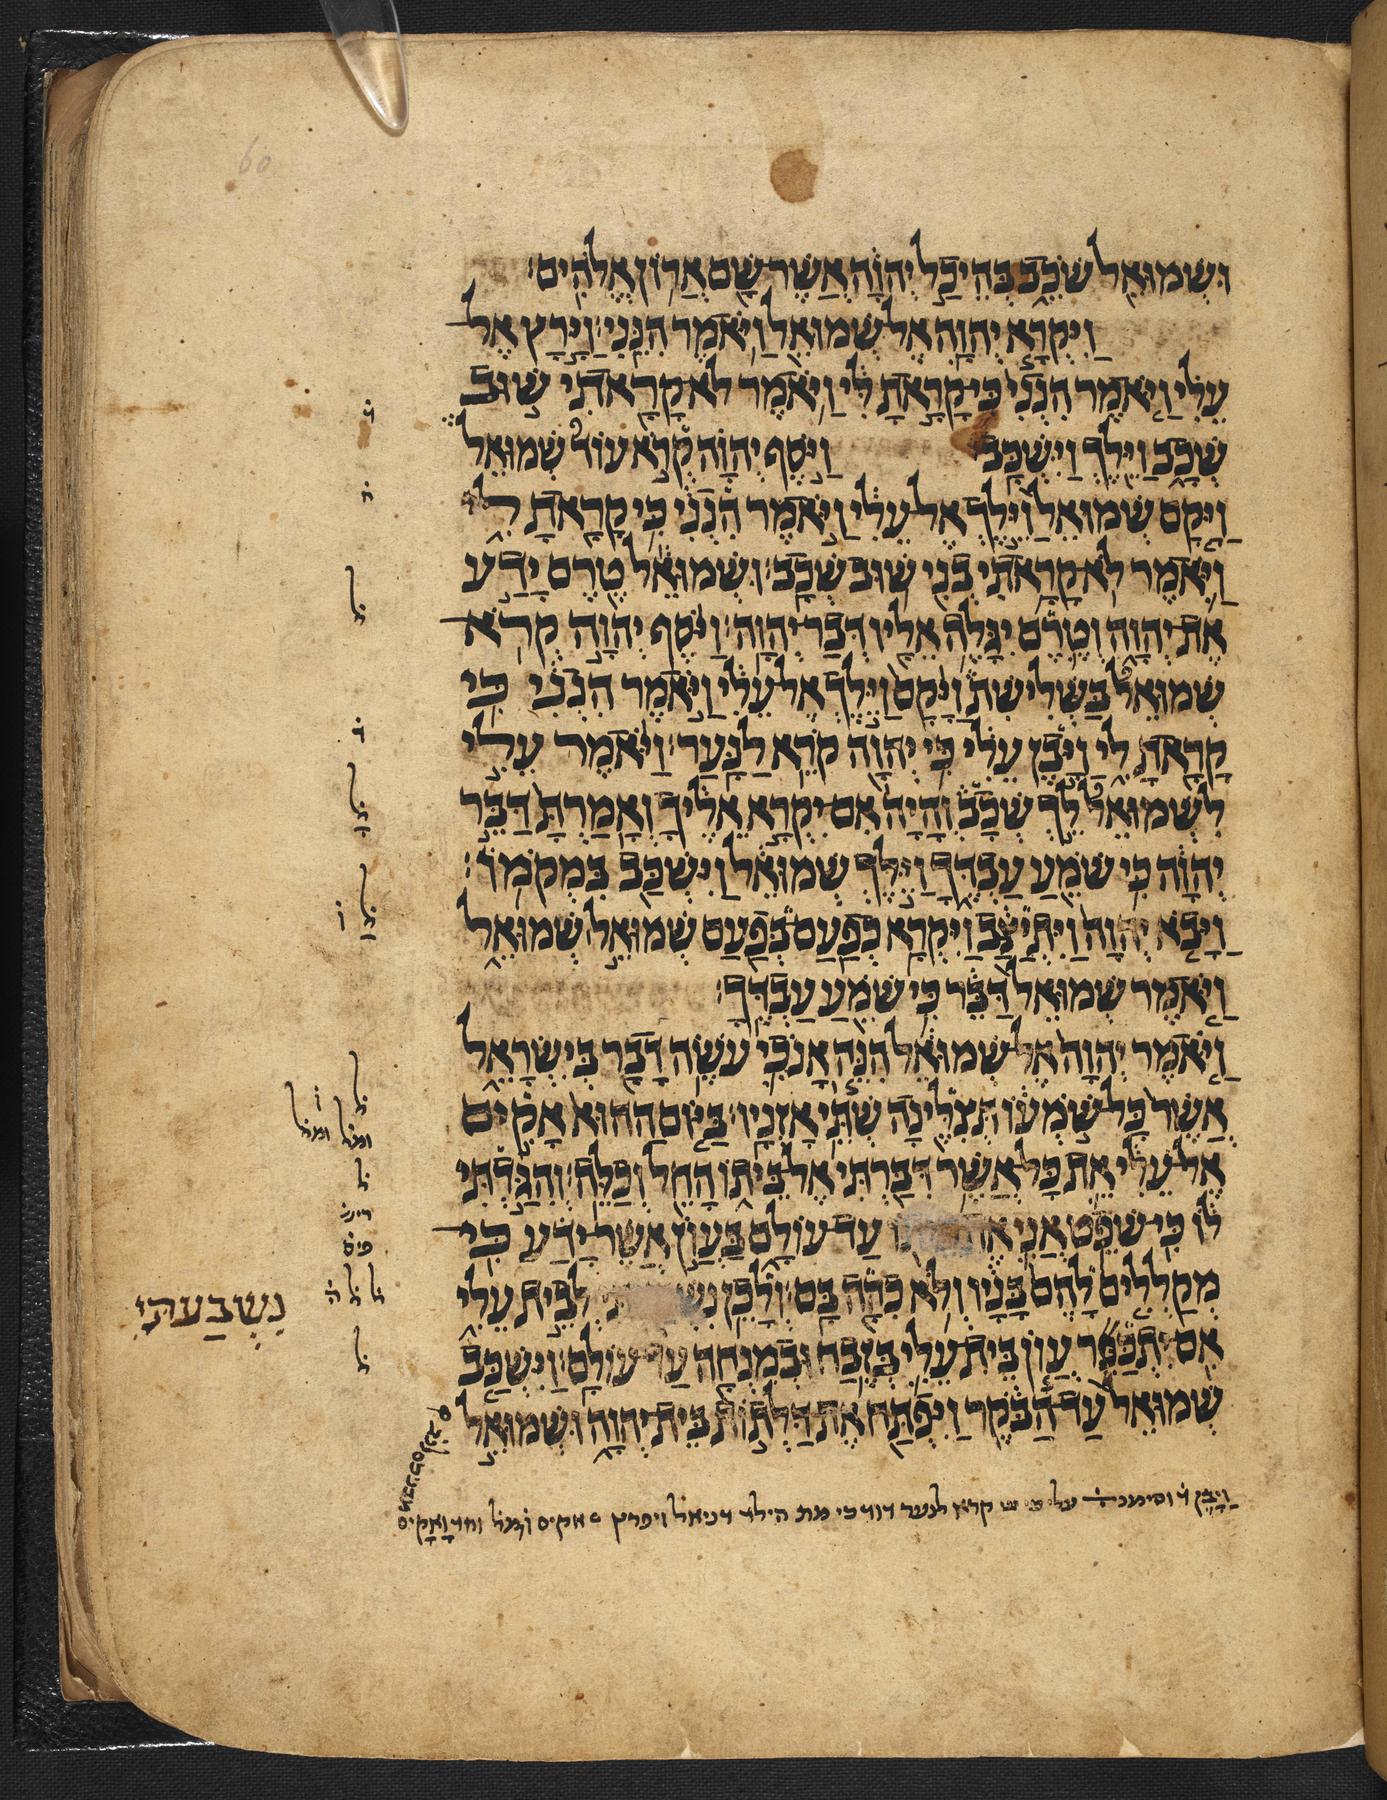 וּשְׁמוּאֵל שֹׁכֵב בְּהֵיכַל יְהוָה אֲשֶׁר שָׁם אֲרוֹן אֱלֹהִים׃
וַיִּקְרָא יְהוָה אֶל שְׁמוּאֵל וַיֹּאמֶר הִנֵּנִי׃ וַיָּרָץ אֶל
עֵלִי וַיֹּאמֶר הִנְנִי כִּי קָרָאתָ לִּי וַיֹּאמֶר לֹא קָרָאתִי שׁוּב
שְׁכָב וַיֵּלֶךְ וַיִּשְׁכָּב׃ וַיֹּסֶף יְהוָה קְרֹא עוֹד שְׁמוּאֵל
וַיָּקָם שְׁמוּאֵל וַיֵּלֶךְ אֶל עֵלִי וַיֹּאמֶר הִנְנִי כִּי קָרָאתָ לִי
וַיֹּאמֶר לֹא קָרָאתִי בְנִי שׁוּב שְׁכָב׃ וּשְׁמוּאֵל טֶרֶם יָדַע
אֶת יְהוָה וְטֶרֶם יִגָּלֶה אֵלָיו דְּבַר יְהוָה׃ וַיֹּסֶף יְהוָה קְרֹא
שְׁמוּאֵל בַּשְּׁלִישִׁת וַיָּקָם וַיֵּלֶךְ אֶל עֵלִי וַיֹּאמֶר הִנְנִי כִּי
קָרָאתָ לִי וַיָּבֶן עֵלִי כִּי יְהוָה קֹרֵא לַנָּעַר׃ וַיֹּאמֶר עֵלִי
לִשְׁמוּאֵל לֵךְ שְׁכָב וְהָיָה אִם יִקְרָא אֵלֶיךָ וְאָמַרְתָּ דַּבֵּר
יְהוָה כִּי שֹׁמֵעַ עַבְדֶּךָ וַיֵּלֶךְ שְׁמוּאֵל וַיִּשְׁכַּב בִּמְקֹמוֹ׃
וַיָּבֹא יְהוָה וַיִּתְיַצַּב וַיִּקְרָא כְפַעַם בְּפַעַם שְׁמוּאֵל שְׁמוּאֵל
וַיֹּאמֶר שְׁמוּאֵל דַּבֵּר כִּי שֹׁמֵעַ עַבְדֶּךָ׃
וַיֹּאמֶר יְהוָה אֶל שְׁמוּאֵל הִנֵּה אָנֹכִי עֹשֶׂה דָבָר בְּיִשְׂרָאֵל
אֲשֶׁר כָּל שֹׁמְעוֹ תְּצִלֶּינָה שְׁתֵּי אָזְנָיו׃ בַּיּוֹם הַהוּא אָקִים
אֶל עֵלִי אֵת כָּל אֲשֶׁר דִּבַּרְתִּי אֶל בֵּיתוֹ הָחֵל וְכַלֵּה׃ וְהִגַּדְתִּי
לוֹ כִּי שֹׁפֵט אֲנִי אֶת עַד עוֹלָם בַּעֲוֹן אֲשֶׁר יָדַע כִּי
מְקַלְלִים לָהֶם בָּנָיו וְלֹא כִהָה בָּם׃ וְלָכֵן לְבֵית עֵלִי
אִם יִתְכַּפֵּר עֲוֹן בֵּית עֵלִי בְּזֶבַח וּבְמִנְחָה עַד עוֹלָם׃ וַיִּשְׁכַּב
שְׁמוּאֵל עַד הַבֹּקֶר וַיִּפְתַּח אֶת דַּלְתוֹת בֵּית יְהוָה וּשְׁמוּאֵל
נִשְׁבַּעְתִּי
וַיָּבֶן ד וסימנ קרא לנער דוד כי מת הילד דניאל
60